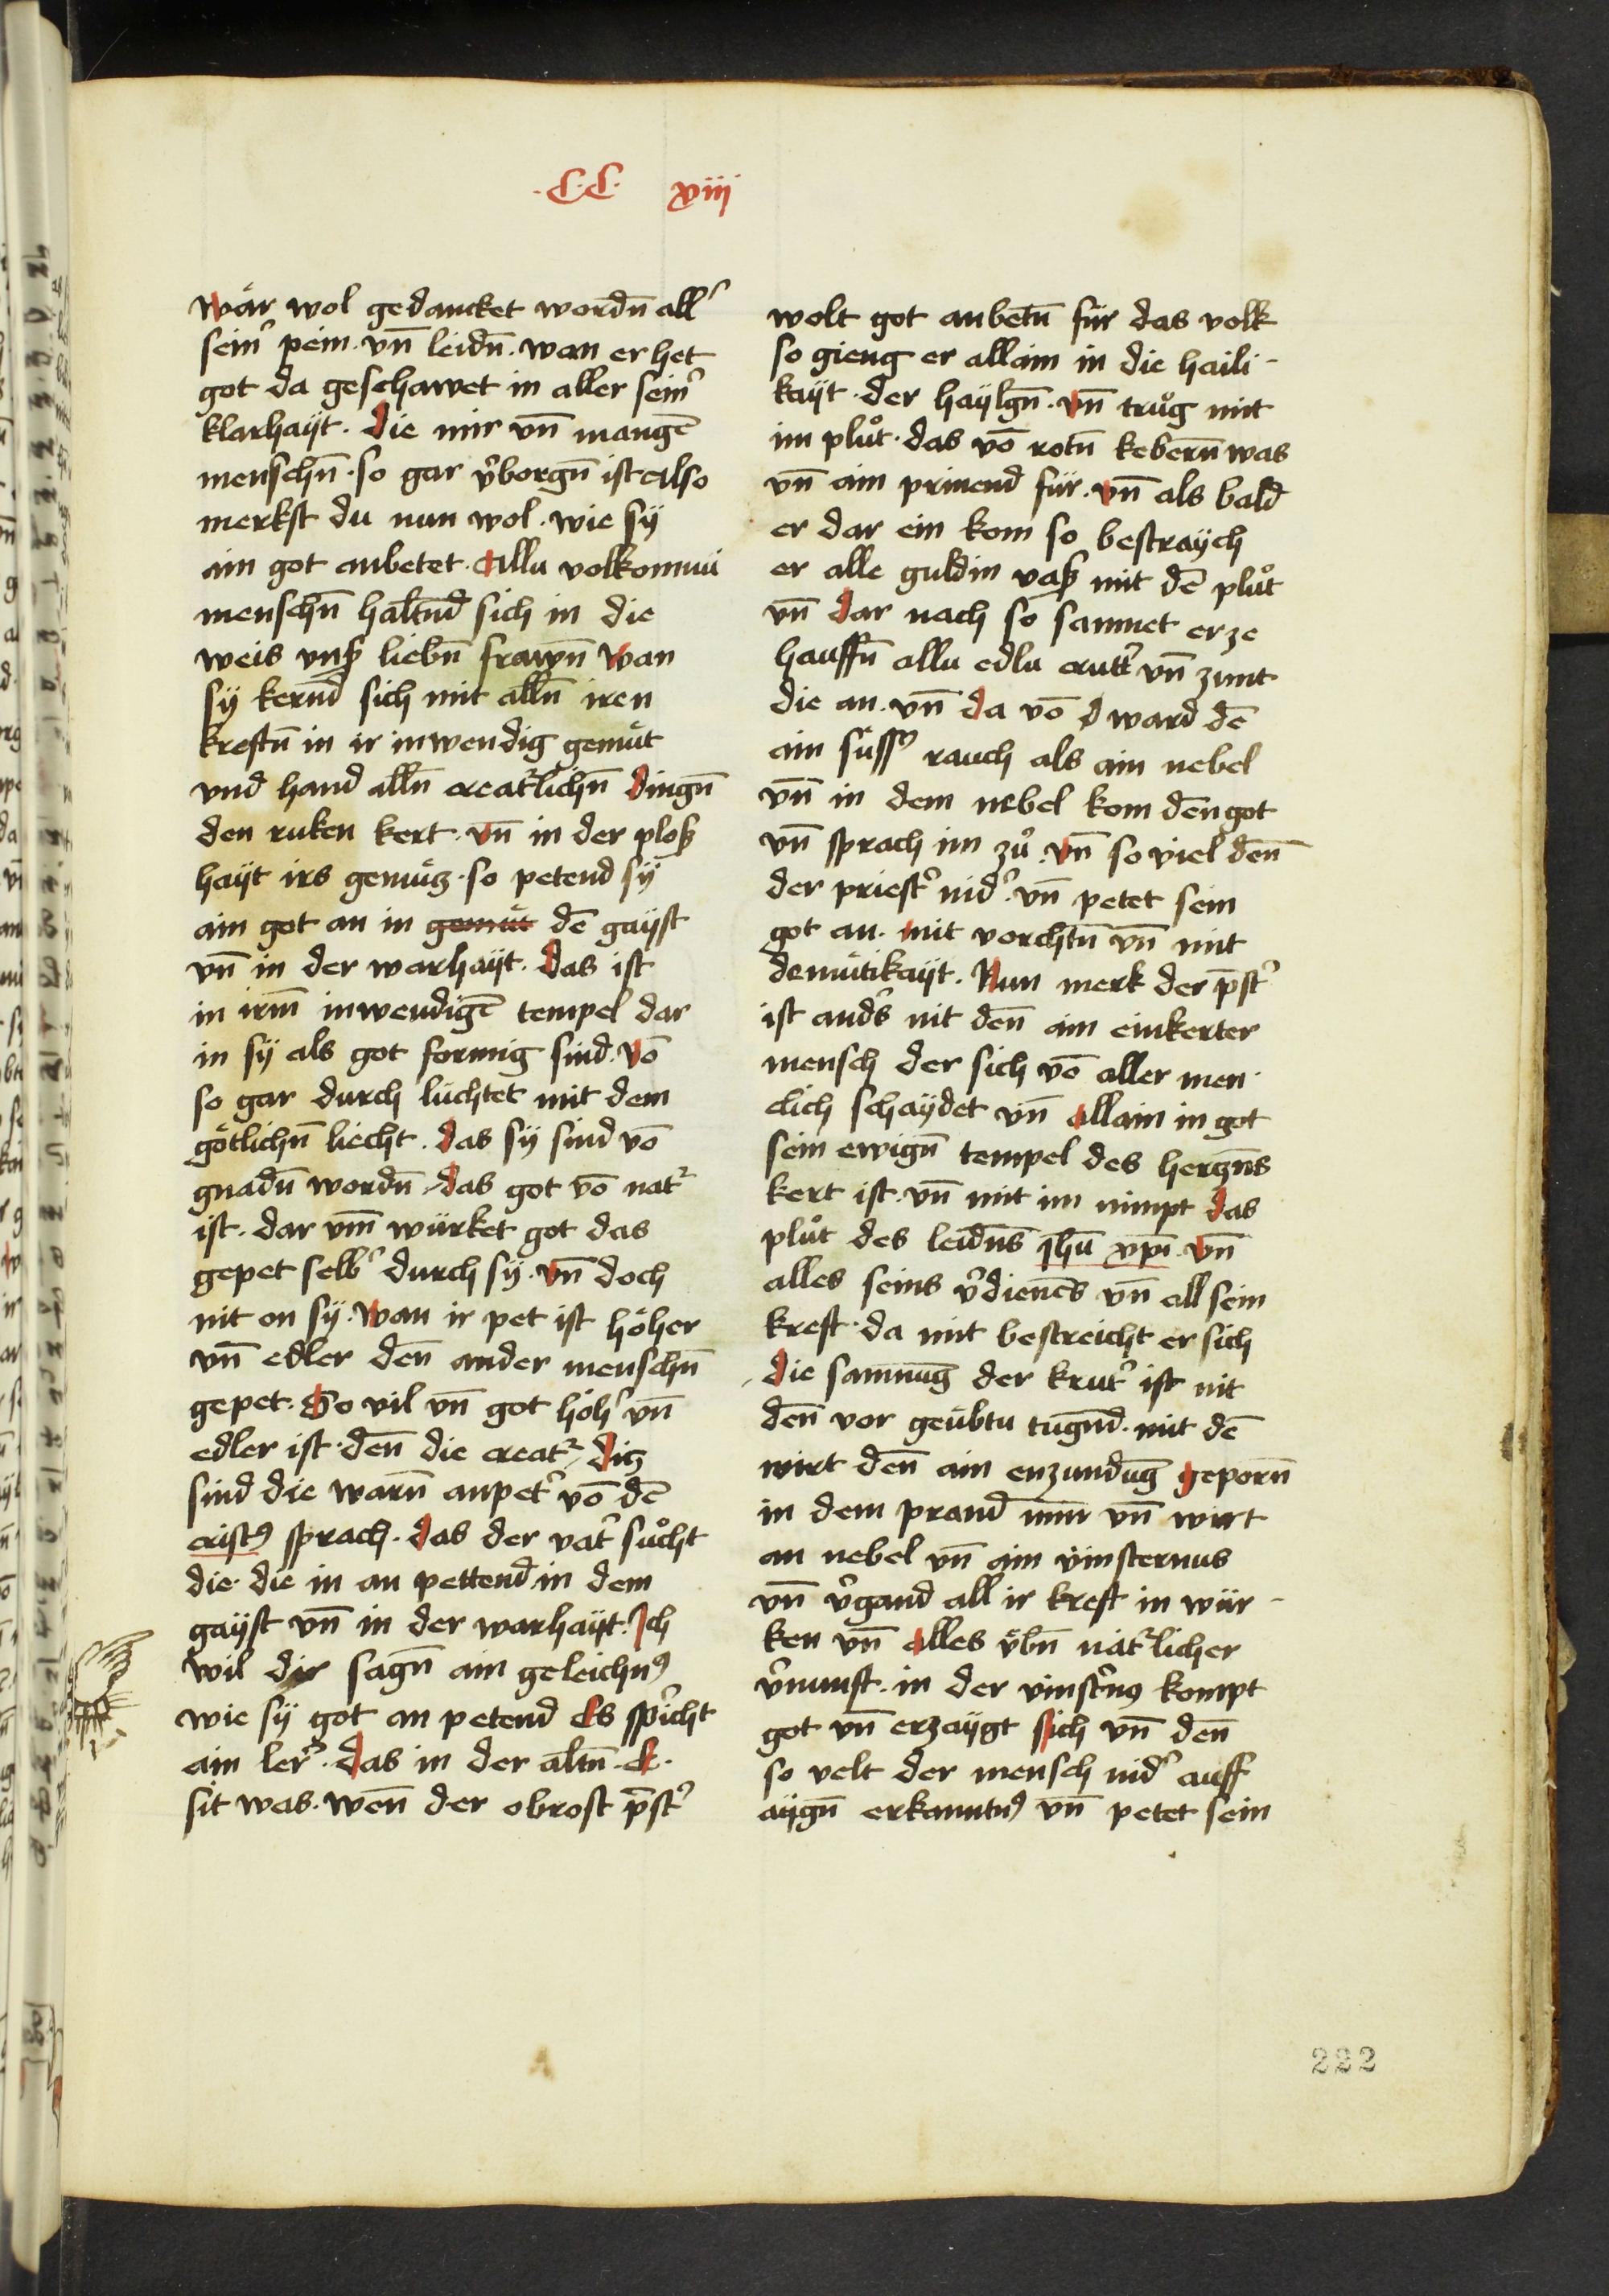 ·C·C· xviij
wär wol gedancket wordn̄ all᾽
sein᾽ pein. vn̄ leidn̄. wan er het
got da geschawet in aller sein᾽
klarhayt. Die mir vn̄ mangē
menschn̄. so gar v᾽borgn̄ ist Also
merkst du nun wol. wie sÿ
ain got anbetet. Allu volkomnu
menschn̄ haltnd̄ sich in die
weis vnsß liebn̄ frawn̄ Wan
sÿ kernd̄ sich mit alln̄ iren
kreftn̄ in ir inwendig gemuͤt
vnd hand alln̄ creatᷣlichn̄ Dingn̄
den ruken kert. vn̄ in der ploß
haÿt irs gemuͤtz. so petend sÿ
ain got an in gemuͤt dē gaÿst
vn̄ in der warhaÿt. Das ist
in irm̄ inwendigē tempel dar
in sÿ als got formig sind. vō
so gar durch lüchtet mit dem
götlichn̄ liecht. Das sÿ sind vō
gnadn̄ wordn̄. Das got vō natᷣ
ist. dar vm̄ würket got das
gepet selb᾽ durch sÿ. vn̄ doch
nit on sÿ. Wan ir pet ist höher
vn̄ edler den̄ ander menschn̄
gepet. So vil vn̄ got höh᾽ vn̄
edler ist. den̄ die creatᷣ Ditz
sind die warn̄ anpet᾽ vō dē
cristꝰ sprach. Das der vat᾽ suͦcht
die. die in an pettend in dem
gaÿst vn̄ in der warhaÿt. Ich
wil dir sagn̄ ain geleichnꝰ
wie sÿ got an petend Es sp᾽icht
ain ler᾽. Das in der altn̄ .E.
sit was. wen̄ der obrost p̄st᾽
wolt got anbetn̄ für das volk
so gieng er allain in die haili-
kaÿt. der haÿlgn̄. vn̄ truͦg mit
im pluͦt. das vō rotn̄ kebern̄ was
vn̄ ain prinend für. vn̄ als bald
er dar ein kom so bestraÿch
er alle guldin vaß mit dē pluͦt
vn̄ Dar nach so samnet er ze
hauffn̄ allu edlu crutt᾽ vn̄ zunt
die an. vn̄ Da vō D ward dē
ain süssꝰ rauch als ain nebel
vn̄ in dem nebel kom den̄ got
vn̄ sprach im zuͦ. vn̄ so viel den̄
der priest᾽ nid᾽. vn̄ petet sein
got an. mit vorchtn̄ vn̄ mit
demuͤtikaÿt. Nun merk der p̄st᾽
ist and᾽s nit den̄ ain einkerter
mensch der sich vō aller men
clich schaÿdet vn̄ Allain in got
sein ewign̄ tempel des hertzn̄s
kert ist. vn̄ mit im nimpt Das
pluͦt des leidn̄s ih̄u xp̄i. vn̄
alles seins v᾽dienēs vn̄ all sein
kreft. da mit bestreicht er sich
Die samnūg der krut᾽ ist nit
den̄ vor geübtu tugnd̄. mit dē
wirt den̄ ain enzundūg geporn̄
in dem prand vn̄ wirt
an nebel vn̄ ain vinsternus
vn̄ v᾽gand all ir kreft in wür-
ken vn̄ Alles v̈bn̄ natᷣlicher
v᾽nunft. in der vinst᾽nꝰ kompt
got vn̄ erzaÿgt sich vn̄ den̄
so velt der mensch nid᾽ auff
aÿgn̄ erkanntnꝰ vn̄ petet sein
222